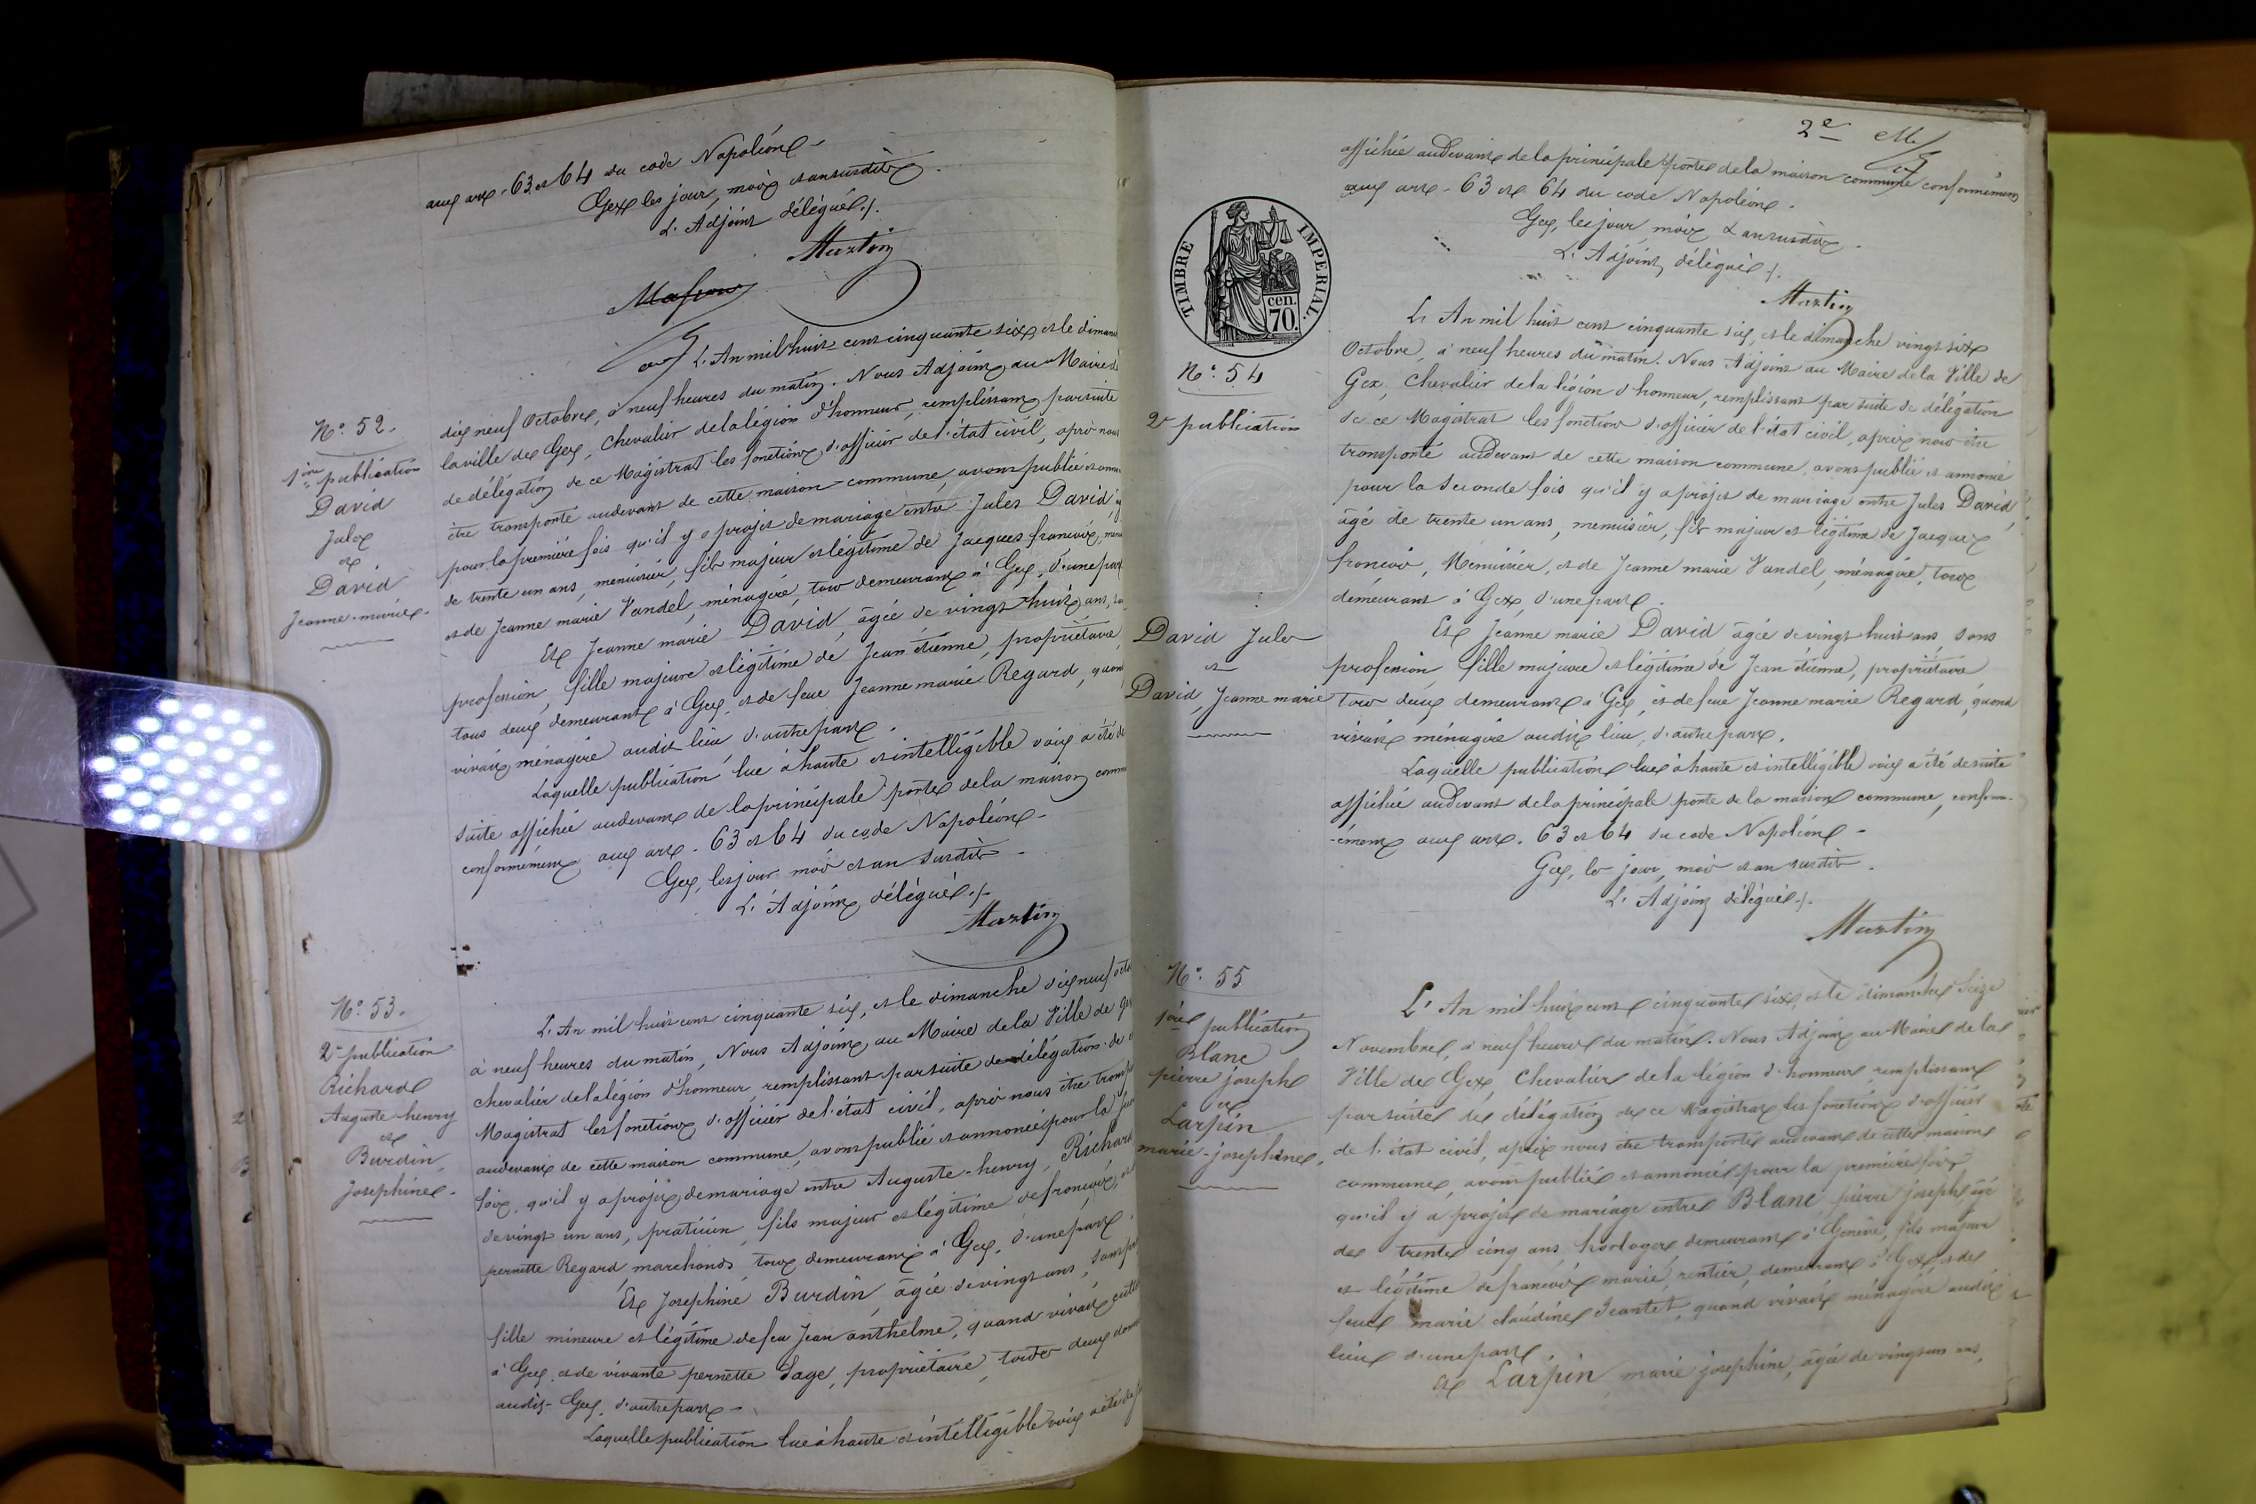 aux art. 63 et 64 du code Napoléon.
Gex les jour, mois et an susdits.
L'Adjoint délégué./.
Martin
N°. 52.
1ère publication
David
Jules
et
David
Jeanne-marie.
L'An mil huit cent cinquante six, et le diman
dix neuf Octobre, à neuf heures du matin. Nous Adjoint au Maire de
la ville de Gex, Chevalier de la légion d'honneur, remplissant par suite
de délégation de ce Magistrat les fonctions d'officier de l'état civil, après nous
être transporté audevant de cette maison commune, avons publié et annon
pour la première fois qu'il y a projet de mariage entre Jules David, âg
de trente un ans, menuisier, fils majeur et légitime de Jacques françois, menui
et de Jeanne marie Vandel, ménagère, tous demeurant à Gex, d'une part
Et Jeanne marie David, âgée de vingt huit ans, sans
profession, fille majeure et légitime de Jean étienne, propriétaire,
tous deux demeurant à Gex, et de feue Jeanne marie Regard, quand
vivait ménagère audit lieu, d'autre part.
Laquelle publication lue à haute et intelligible voix a été de
suite affichée audevant de la principale porte de la maison comm
conformément aux art. 63 et 64 du code Napoléon.
Gex, les jour mois et an susdits.
L'Adjoint délégué./.
Martin
N°. 53.
2e publication
Richard
Auguste-henry
et
Burdin,
Josephine.
L'An mil huit cent cinquante six, et le dimanche dix neuf octo
à neuf heures du matin, Nous Adjoint au Maire de la Ville de Gex
chevalier de la légion d'honneur, remplissant par suite de délégation de ce
Magistrat les fonctions d'officier de l'état civil, après nous être transpo
audevant de cette maison commune, avons publié et annoncé pour la
fois, qu'il y a projet de mariage entre Auguste-henry, Richard
de vingt un ans, praticien, fils majeur et légitime de françois, et
pernette Regard, marchands, tous demeurant à Gex, d'une part.
Et Josephine Burdin, âgée de vingt ans, sans pro
fille mineure et légitime de feu Jean anthelme, quand vivait culti
à Gex, et de vivante pernette Sage, propriétaire, toutes deux dem
audit Gex, d'autre part.
Laquelle publication lue à haute et intelligible voix a été de s
2e
affichée audevant de la principale porte de la maison commune conformément
aux art. 63 et 64 du code Napoléon.
Gex, les jour, mois & an susdits.
L'Adjoint délégué./.
Martin
TIMBRE IMPERIAL.
cen.
70.
N°. 54
2e publication
David Jules
et
David, Jeanne marie
L'An mil huit cent cinquante six, et le dimanche vingt six
Octobre, à neuf heures du matin. Nous Adjoint au Maire de la Ville de
Gex, Chevalier de la légion d'honneur, remplissant par suite de délégation
de ce Magistrat les fonctions d'officier de l'état civil, après nous être
transporté audevant de cette maison commune, avons publié et annoncé
pour la seconde fois qu'il y a projet de mariage entre Jules David,
âgé de trente un ans, menuisier, fils majeur et légitime de Jacques
françois, Menuisier, et de Jeanne marie Vandel, ménagère, tous
demeurant à Gex, d'une part.
Et Jeanne marie David âgée de vingt huit ans, sans
profession, fille majeure et légitime de Jean étienne, propriétaire,
tous deux demeurant à Gex, et de feue Jeanne marie Regard, quand
vivait ménagère audit lieu, d'autre part.
Laquelle publication lue à haute et intelligible voix a été de suite
affichée audevant de la principale porte de la maison commune, conform-
-ément aux art. 63 et 64 du code Napoléon.
Gex, les jour, mois et an susdits.
L'Adjoint délégué./.
Martin
N°. 55
1ère publication
Blanc
pierre joseph
et
Larpin
marie-josephine.
L'An mil huit cent cinquante six, et le dimanche Seize
Novembre, à neuf heures du matin. Nous Adjoint au Maire de la
Ville de Gex, Chevalier de la légion d'honneur, remplissant
par suite de délégation de ce Magistrat les fonctions d'officier
de l'état civil, après nous être transporté audevant de cette maison
commune, avons publié et annoncé pour la première fois
qu'il y a projet de mariage entre Blanc pierre joseph, âgé
de trente cinq ans, horloger, demeurant à Genève, fils majeur
et légitime de françois marie, rentier, demeurant à Gex, et de
feue marie claudine Jeantet, quand vivait ménagère audit
lieu d'une part.
Et Larpin, marie josephine, âgée de vingt un ans,